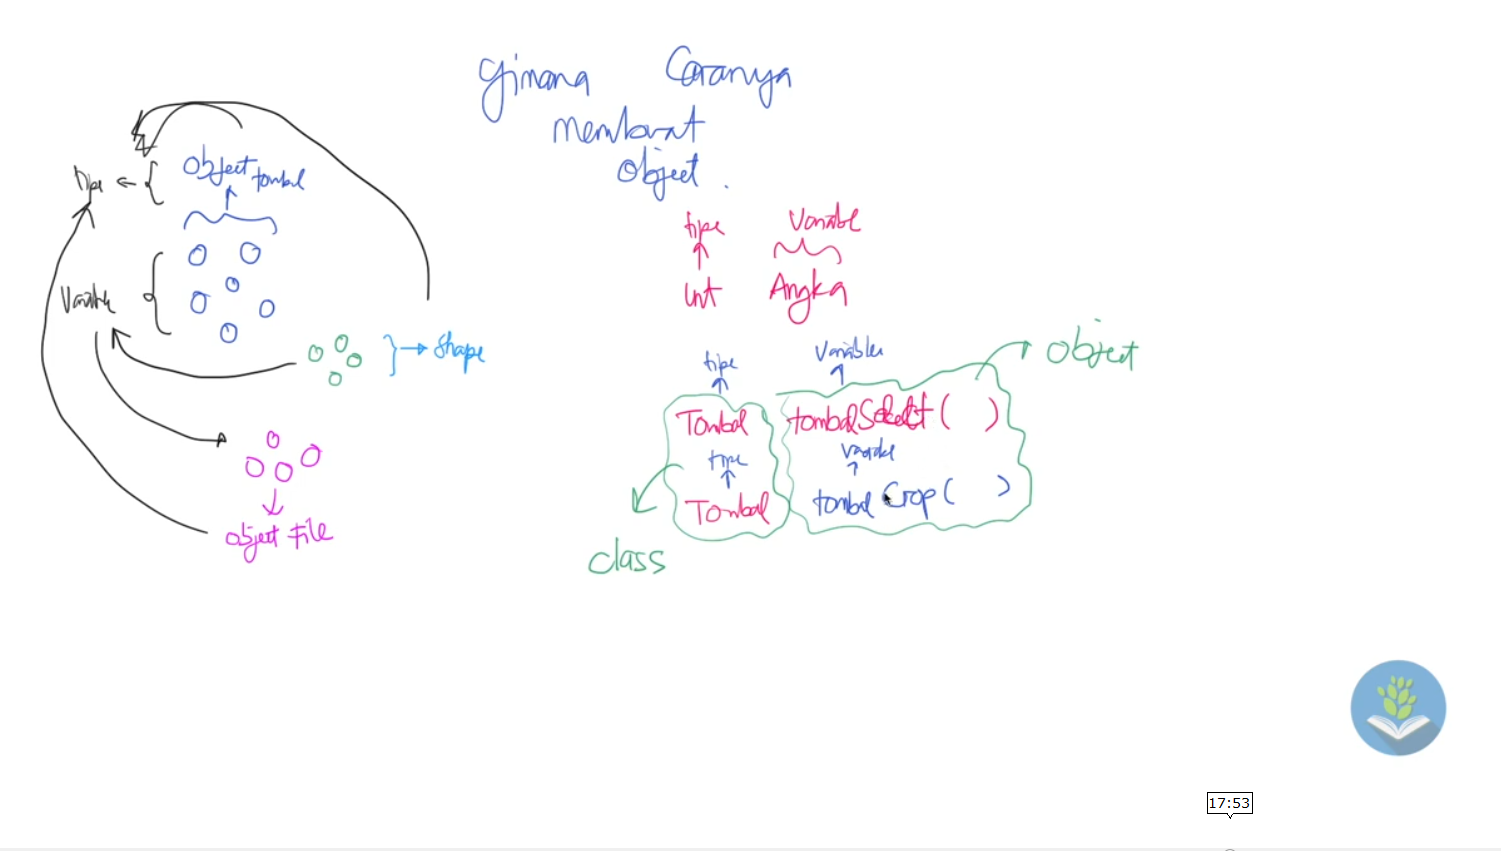 Gimana Caranya
membuat
object.
tipe ← {
object tombol
Variable {
} → Shape
object File
tipe Variable
Int Angka
tipe Variabel
object
Tombol tombolSelect ( )
tipe Variabel
Tombol tombol Crop ( )
class
17:53